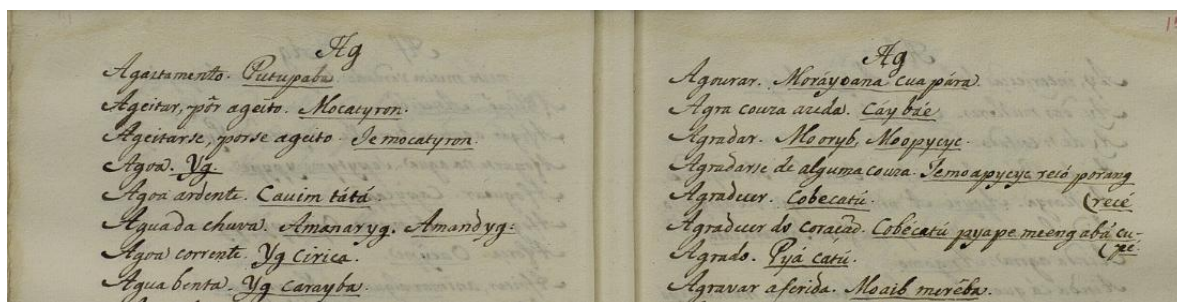 Ag
Agastamento. Putupaba
Ageitar, pôr ageito. Mocatyron.
Ageitarse, porse ageito. Jemocatyron.
Agoa. Yg.
Agoa ardente. Cauim tátá.
Agua da chuva. Amanaryg. Amandyg.
Agoa corrente. Yg Cirica.
Agua benta. Yg carayba.
Ag
Agourar. Moráy͠dana cuapára.
Agra couza azeda. Cáy báe
Agradar. Mooryb, Moopycyc.
Agradarse de alguma couza. Jemoapycyc reçó porang
Agradecer. Cobecatú. (recé
Agradecer do coraçaõ. Cobécatú pyape meeng abá cu-
Agrado. Pyá catú. (pé.
Agravar aferida. Moaib meréba.